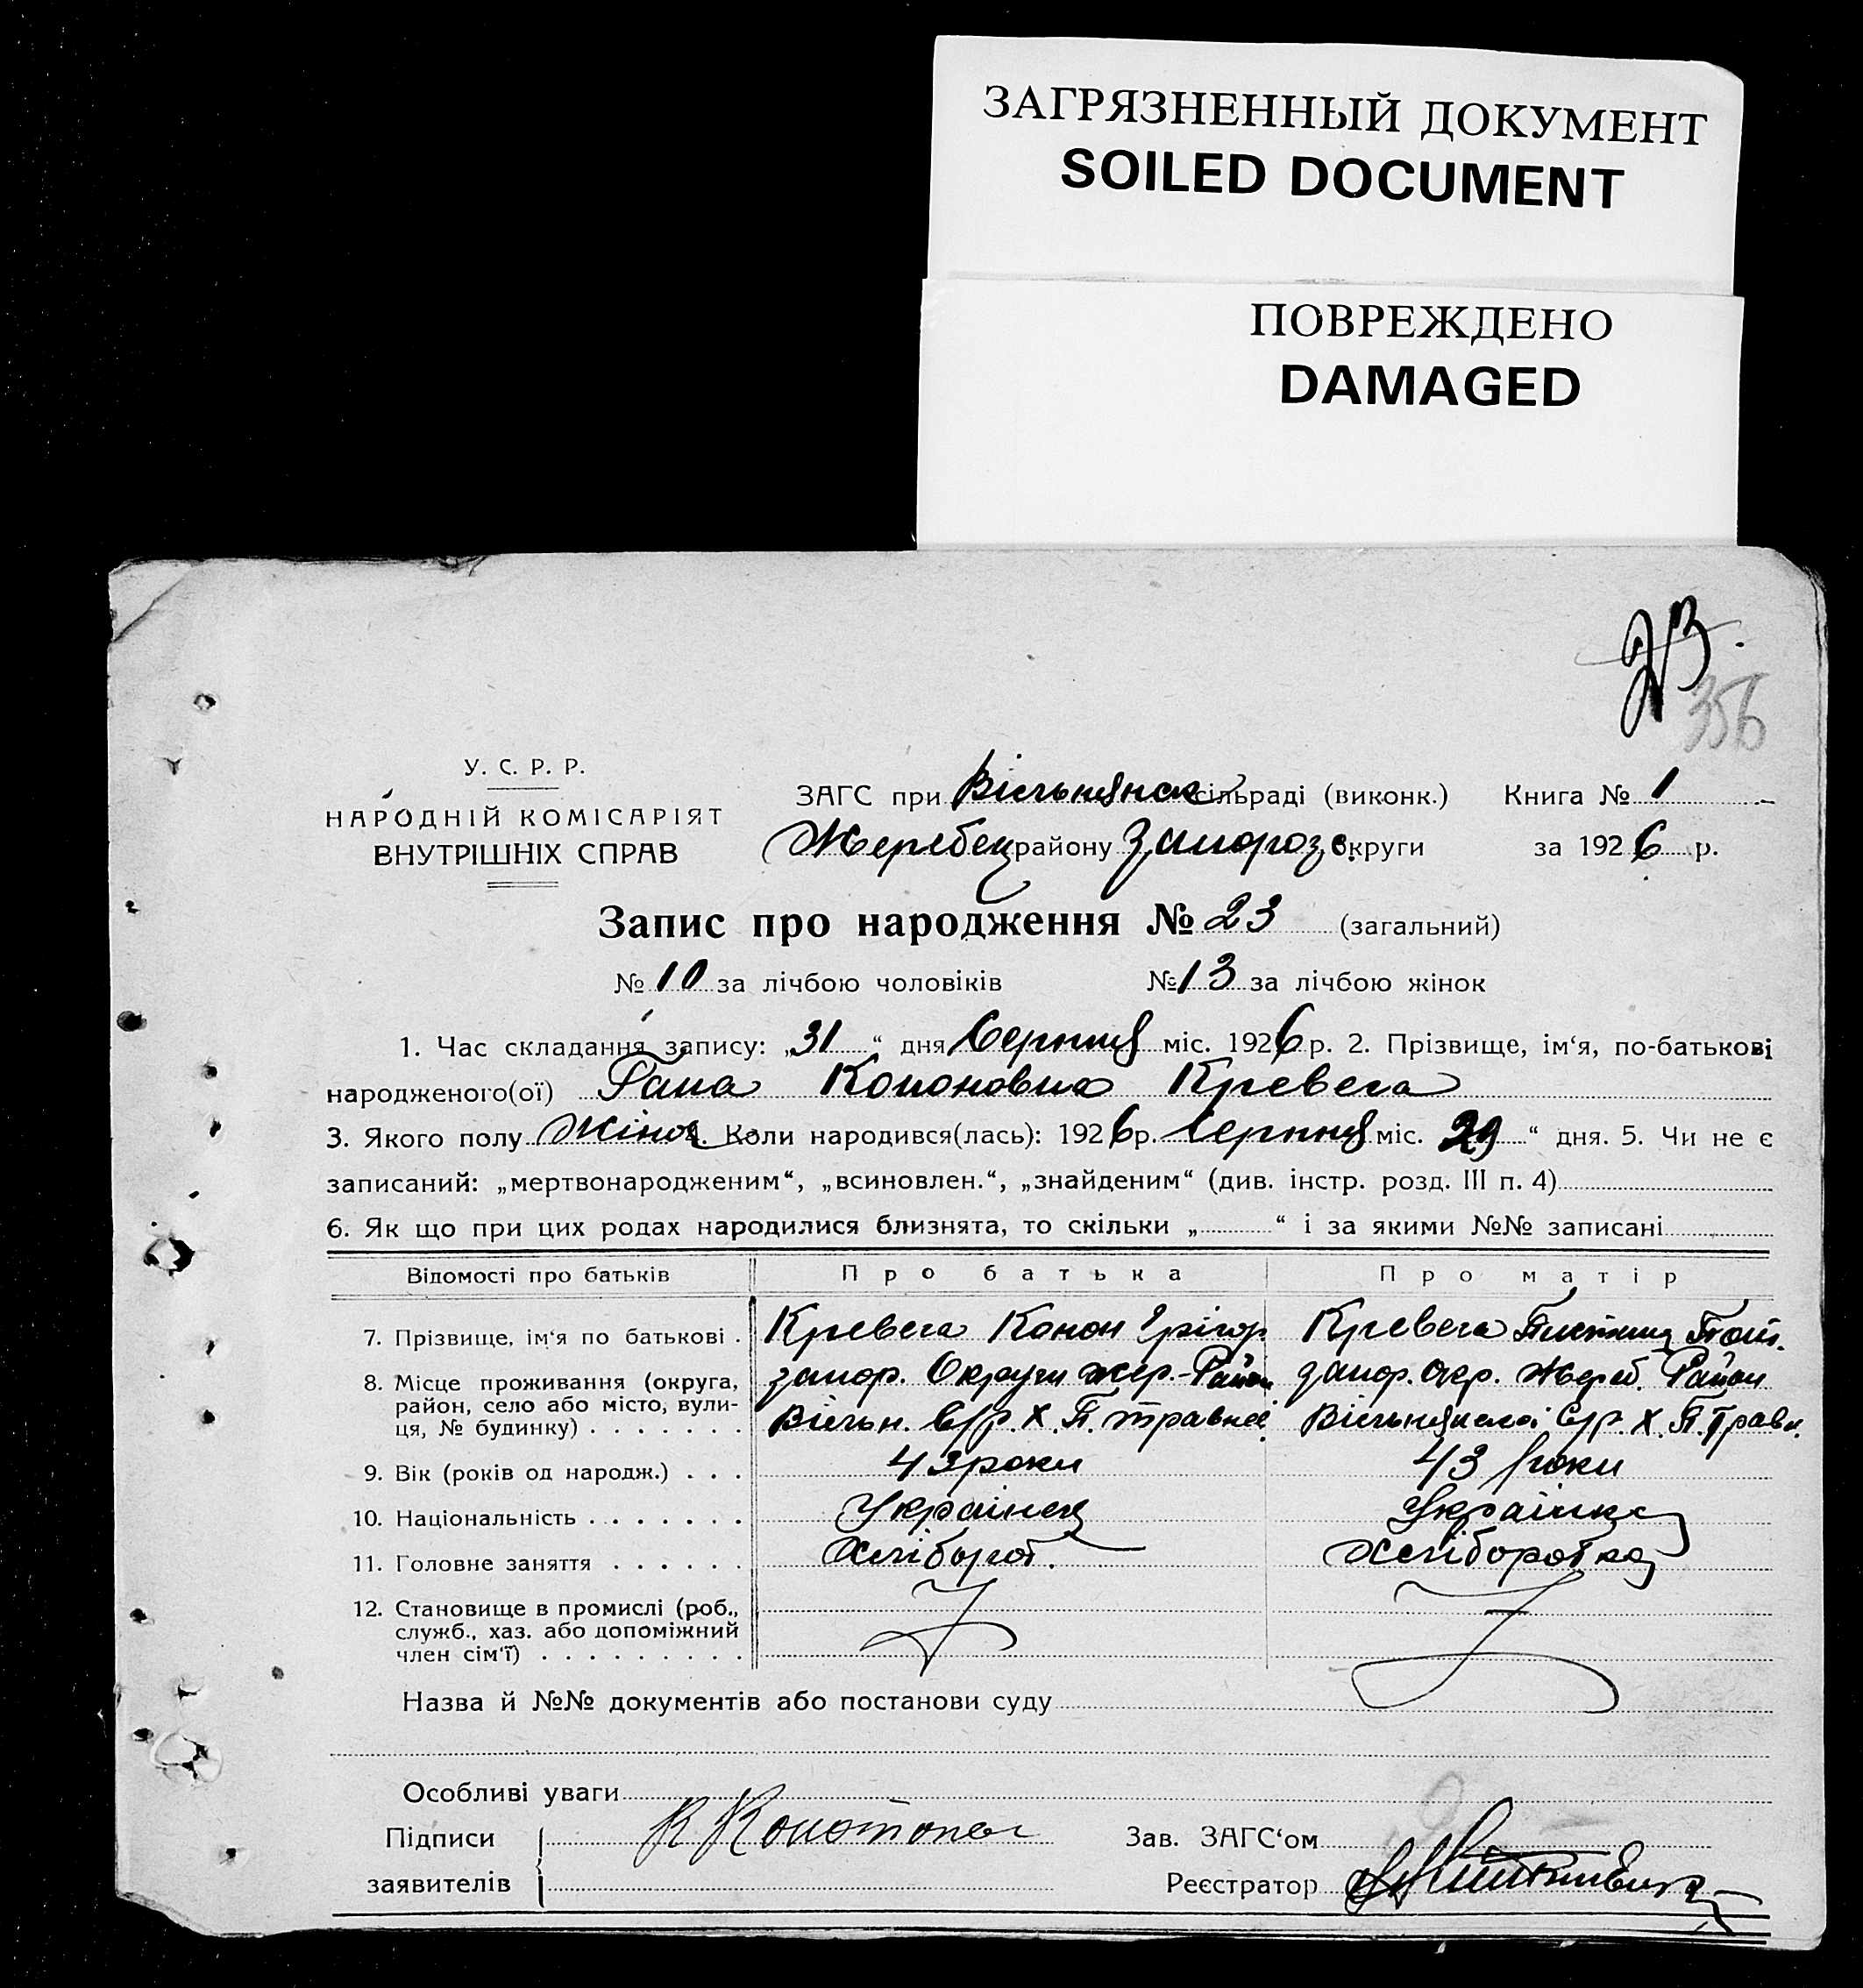 ЗАГРЯЗНЕННЫЙ ДОКУМЕНТ
SOILED DOCUMENT
ПОВРЕЖДЕНО
DAMAGED
23.
356
У. С. Р. Р.
НАРОДНІЙ КОМІСАРІЯТ
ВНУТРІШНІХ СПРАВ
ЗАГС при Вільнянск сільраді (виконк.) Книга № 1
Жеребец району Запороз. округи за 1926 р.
Запис про народження № 23 (загальний)
№ 10 за лічбою чоловіків № 13 за лічбою жінок
1. Час складання запису: „31“ дня Серпня міс. 1926 р. 2. Прізвище, ім'я, по-батькові
народженого(ої) Гана Кононовна Кревега
3. Якого полу жіноч. 4. Коли народився(лась): 1926 р. Серпня міс. 29 “ дня. 5. Чи не є
записаний: „мертвонародженим“, „всиновлен.“, „знайденим“ (див. інстр. розд. III п. 4)
6. Як що при цих родах народилися близнята, то скільки „ “ і за якими №№ записані
Відомості про батьків Про батька Про матір
7. Прізвище, ім'я по батькові . Кревега Конон Грігор Кревега
8. Місце проживання (округа, район, село або місто, вулиця, № будинку) . . . . . . .
запор. Округи жер.-Район запор. окр. Жереб. Район
Вільн. С/р. х. П. травнеі Вільнянскоі С/р. х. П. Травн.
9. Вік (років од народж.) . . . 43 роки 43 роки
10. Національність . . . . . . . Українец Українка
11. Головне заняття . . . . . Хлібороб. Хлібороб ка
12. Становище в промислі (роб., служб., хаз. або допоміжний член сім'ї) . . . . . . . . .
Назва й №№ документів або постанови суду
Особливі уваги
Підписи заявителів
Зав. ЗАГС'ом
Реєстратор